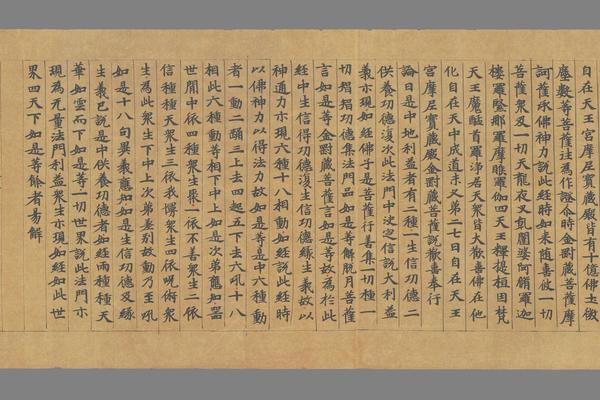 自在天王宮摩尼寶藏殿皆有十億佛土微
塵數等菩薩往為作證尒時金剛藏菩薩摩
訶薩承佛神力說此經時如来随喜彼一切
菩薩衆及一切天龍夜叉乹闥婆阿脩羅迦
樓羅緊那羅摩睺羅伽四天王釋提桓因梵
天王魔醯首羅淨居天衆皆大歡喜佛在他
化自在天中成道未久第二七日自在天王
宮摩尼寶藏殿金剛藏菩薩說歡喜奉行
論曰是中地利益者有二種一生信功德二
供養功德復次此法門中决定信說大利益
義亦現如經佛子是菩薩行善集一切種一
切智智功德集法門品如是等解脱月菩薩
言如是等金剛藏菩薩言如是等故於此
經中生信得功德復生信功德縁生義故以
神通力亦現六種十八相動如經說此經時
以佛神力以得法力故如是等是中六種動
者一動二踊三上去四起五下去六吼十八
相此六種動等相下中上如是次第應知器
世間中依四種衆生聚一依不善衆生二依
信種種天衆生三依我慢衆生四依呪術衆
生為此衆生下中上次第差别故動乃至吼
如是十八句異義應知如是生信功德及縁
生義已說是中供養功德者如經雨種種天
華如雲而下如是等一切世界說此法門亦
現為无量法門利益衆生亦現如經如此世
界四天下如是等餘者易解